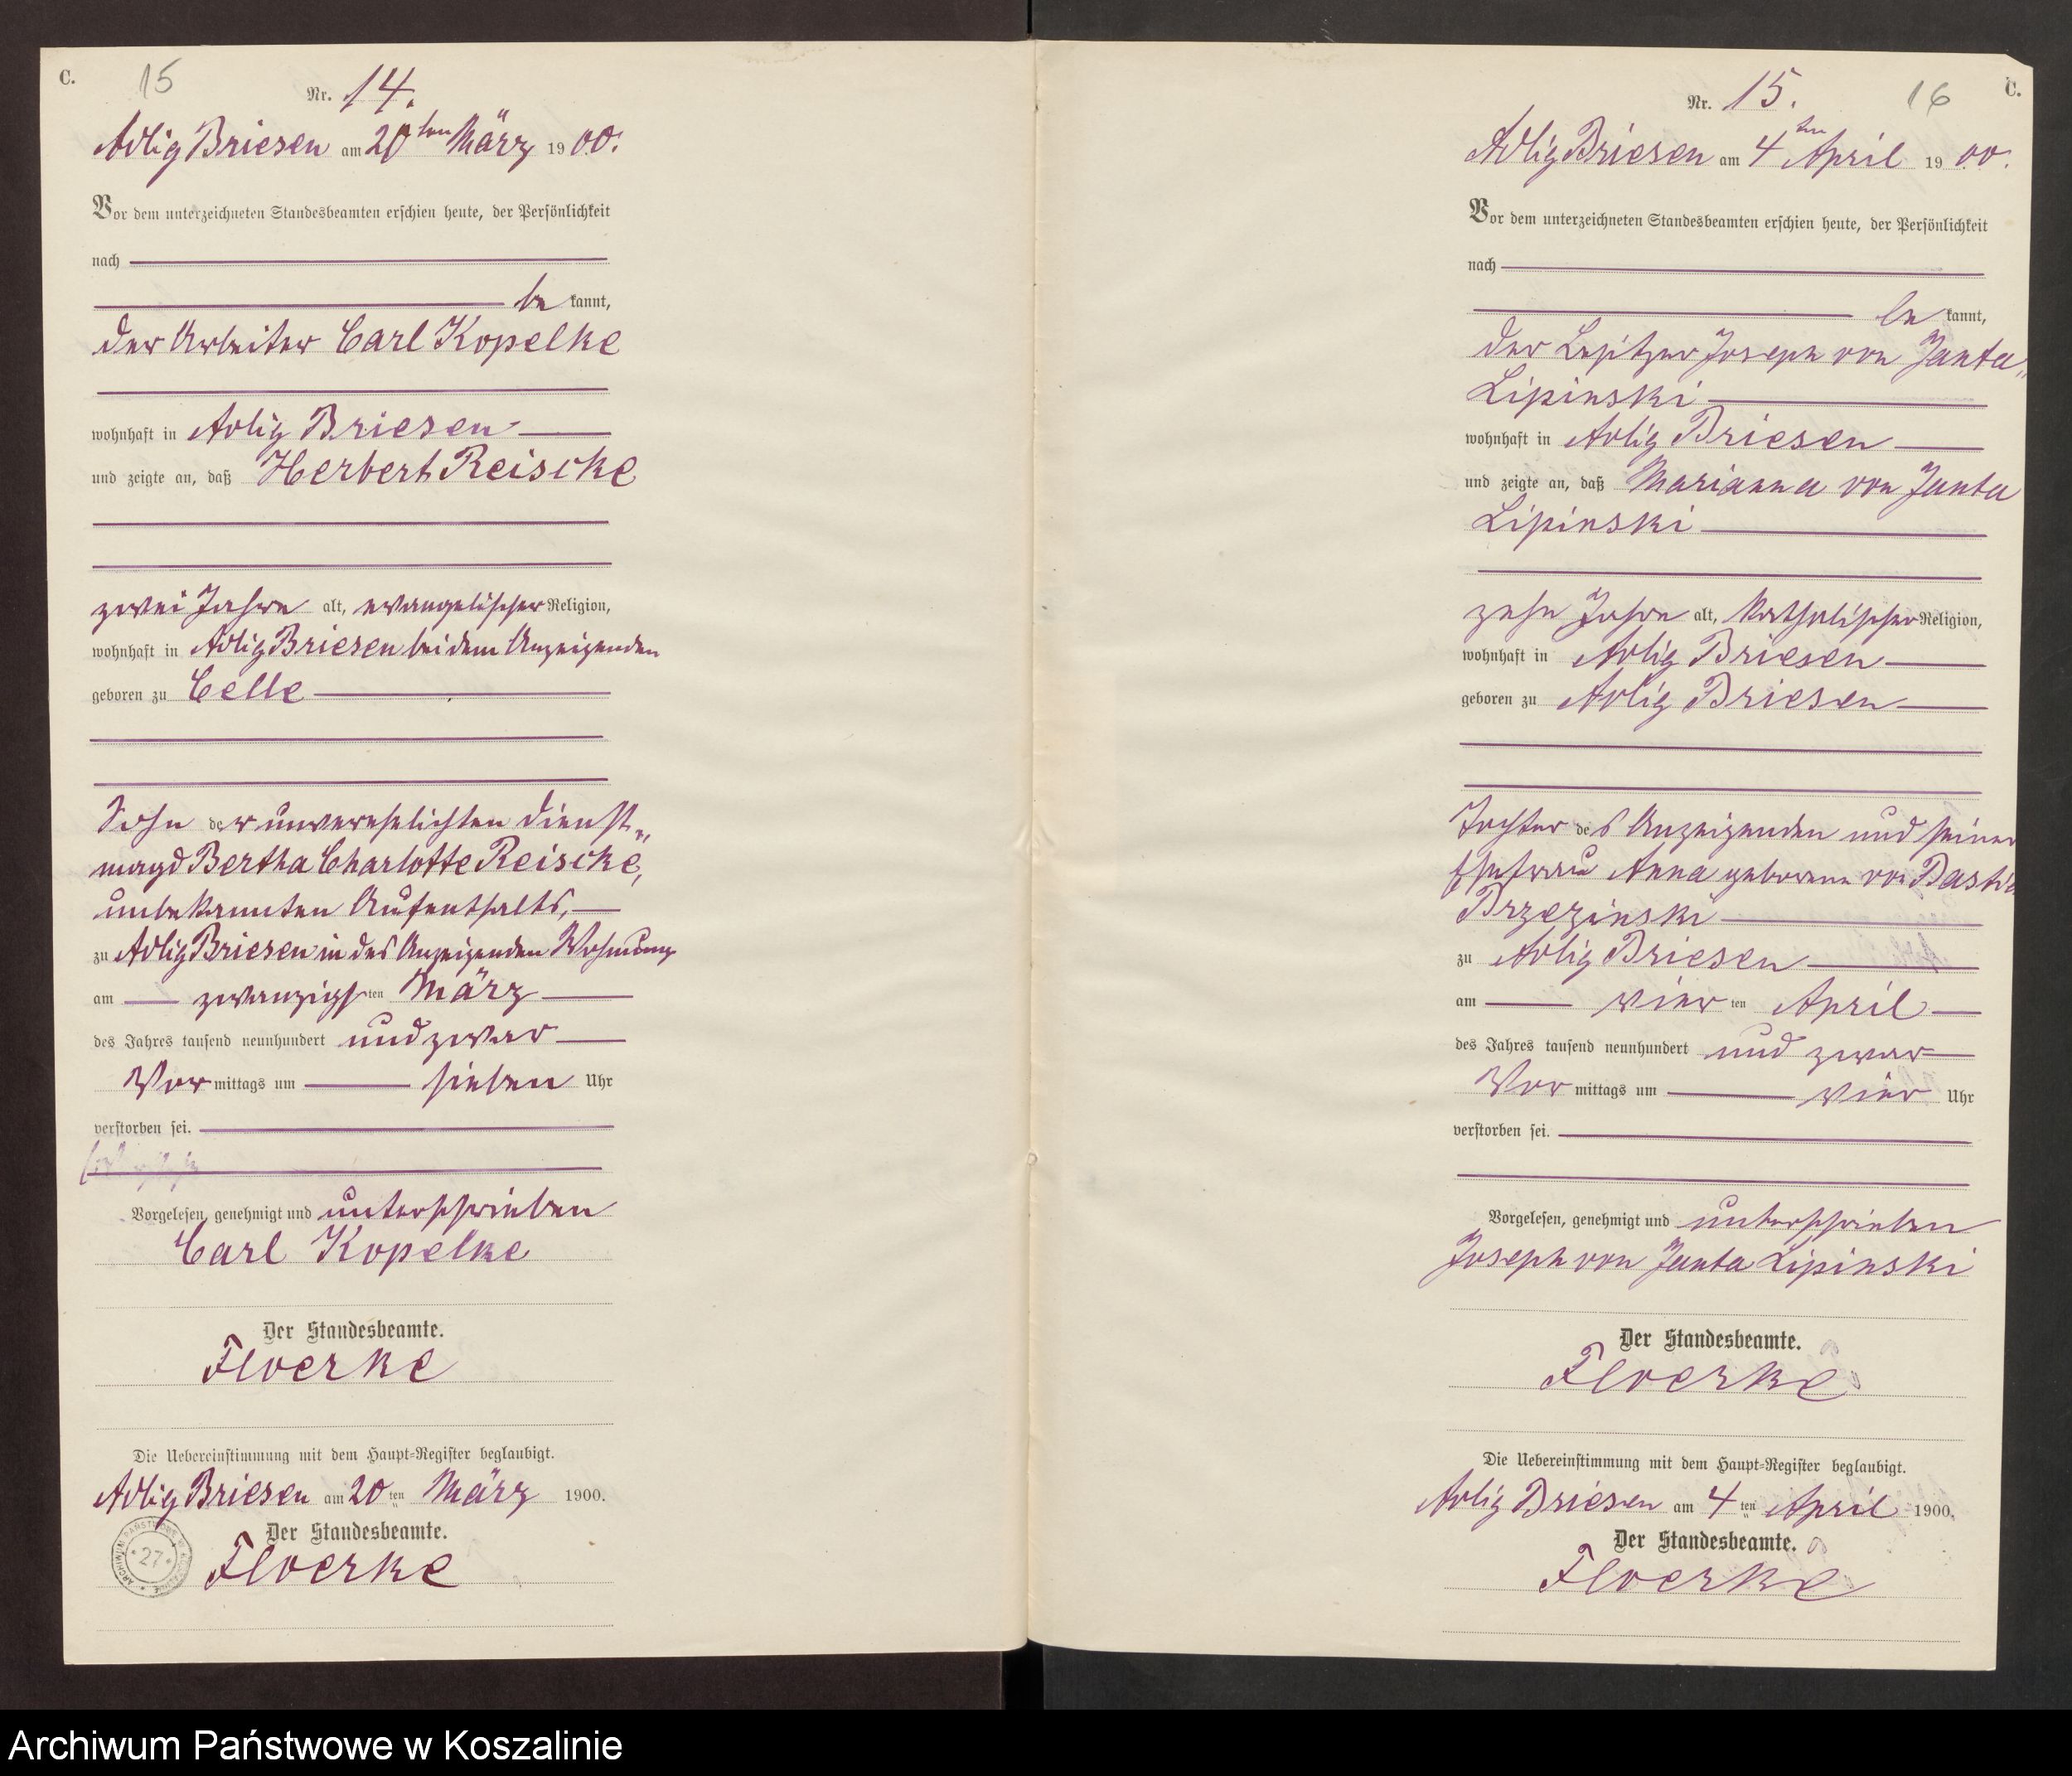 C.
15
Nr. 14.
Adlig Briesen am 20ten März 1900.
Vor dem unterzeichneten Standesbeamten erschien heute, der Persönlichkeit
nach
be kannt,
der Arbeiter Carl Kopelke
wohnhaft in Adlig Briesen
und zeigte an, daß Herbert Reischke
zwei Jahre alt, evangelischer Religion,
wohnhaft in Adlig Briesen bei dem Anzeigenden
geboren zu Celle
Sohn der unverehelichten Dienst„
magd Bertha Charlotte Reischke,
unbekannten Aufenthalts,
zu Adlig Briesen in des Anzeigenden Wohnung
am zwanzigsten März
des Jahres tausend neunhundert und zwar
Vor mittags um sieben Uhr
verstorben sei.
Vorgelesen, genehmigt und unterschrieben
Carl Kopelke
Der Standesbeamte.
Floerke
Die Uebereinstimmung mit dem Haupt-Register beglaubigt.
Adlig Briesen am 20ten März 1900.
Der Standesbeamte.
Floerke
ARCHIWUM PAŃSTWOWE W KOSZALINIE
27
C.
16
Nr. 15.
Adlig Briesen am 4ten April 1900.
Vor dem unterzeichneten Standesbeamten erschien heute, der Persönlichkeit
nach
be kannt,
der Besitzer Joseph von Janta„
Lipinski
wohnhaft in Adlig Briesen
und zeigte an, daß Marianna von Janta
Lipinski
zehn Jahre alt, katholischer Religion,
wohnhaft in Adlig Briesen
geboren zu Adlig Briesen
Tochter des Anzeigenden und seiner
Ehefrau Anna geborene von
Brzezinski
zu Adlig Briesen
am vierten April
des Jahres tausend neunhundert und zwar
Vor mittags um vier Uhr
verstorben sei.
Vorgelesen, genehmigt und unterschrieben
Joseph von Janta Lipinski
Der Standesbeamte.
Floerke
Die Uebereinstimmung mit dem Haupt-Register beglaubigt.
Adlig Briesen am 4ten April 1900.
Der Standesbeamte.
Floerke
Archiwum Państwowe w Koszalinie